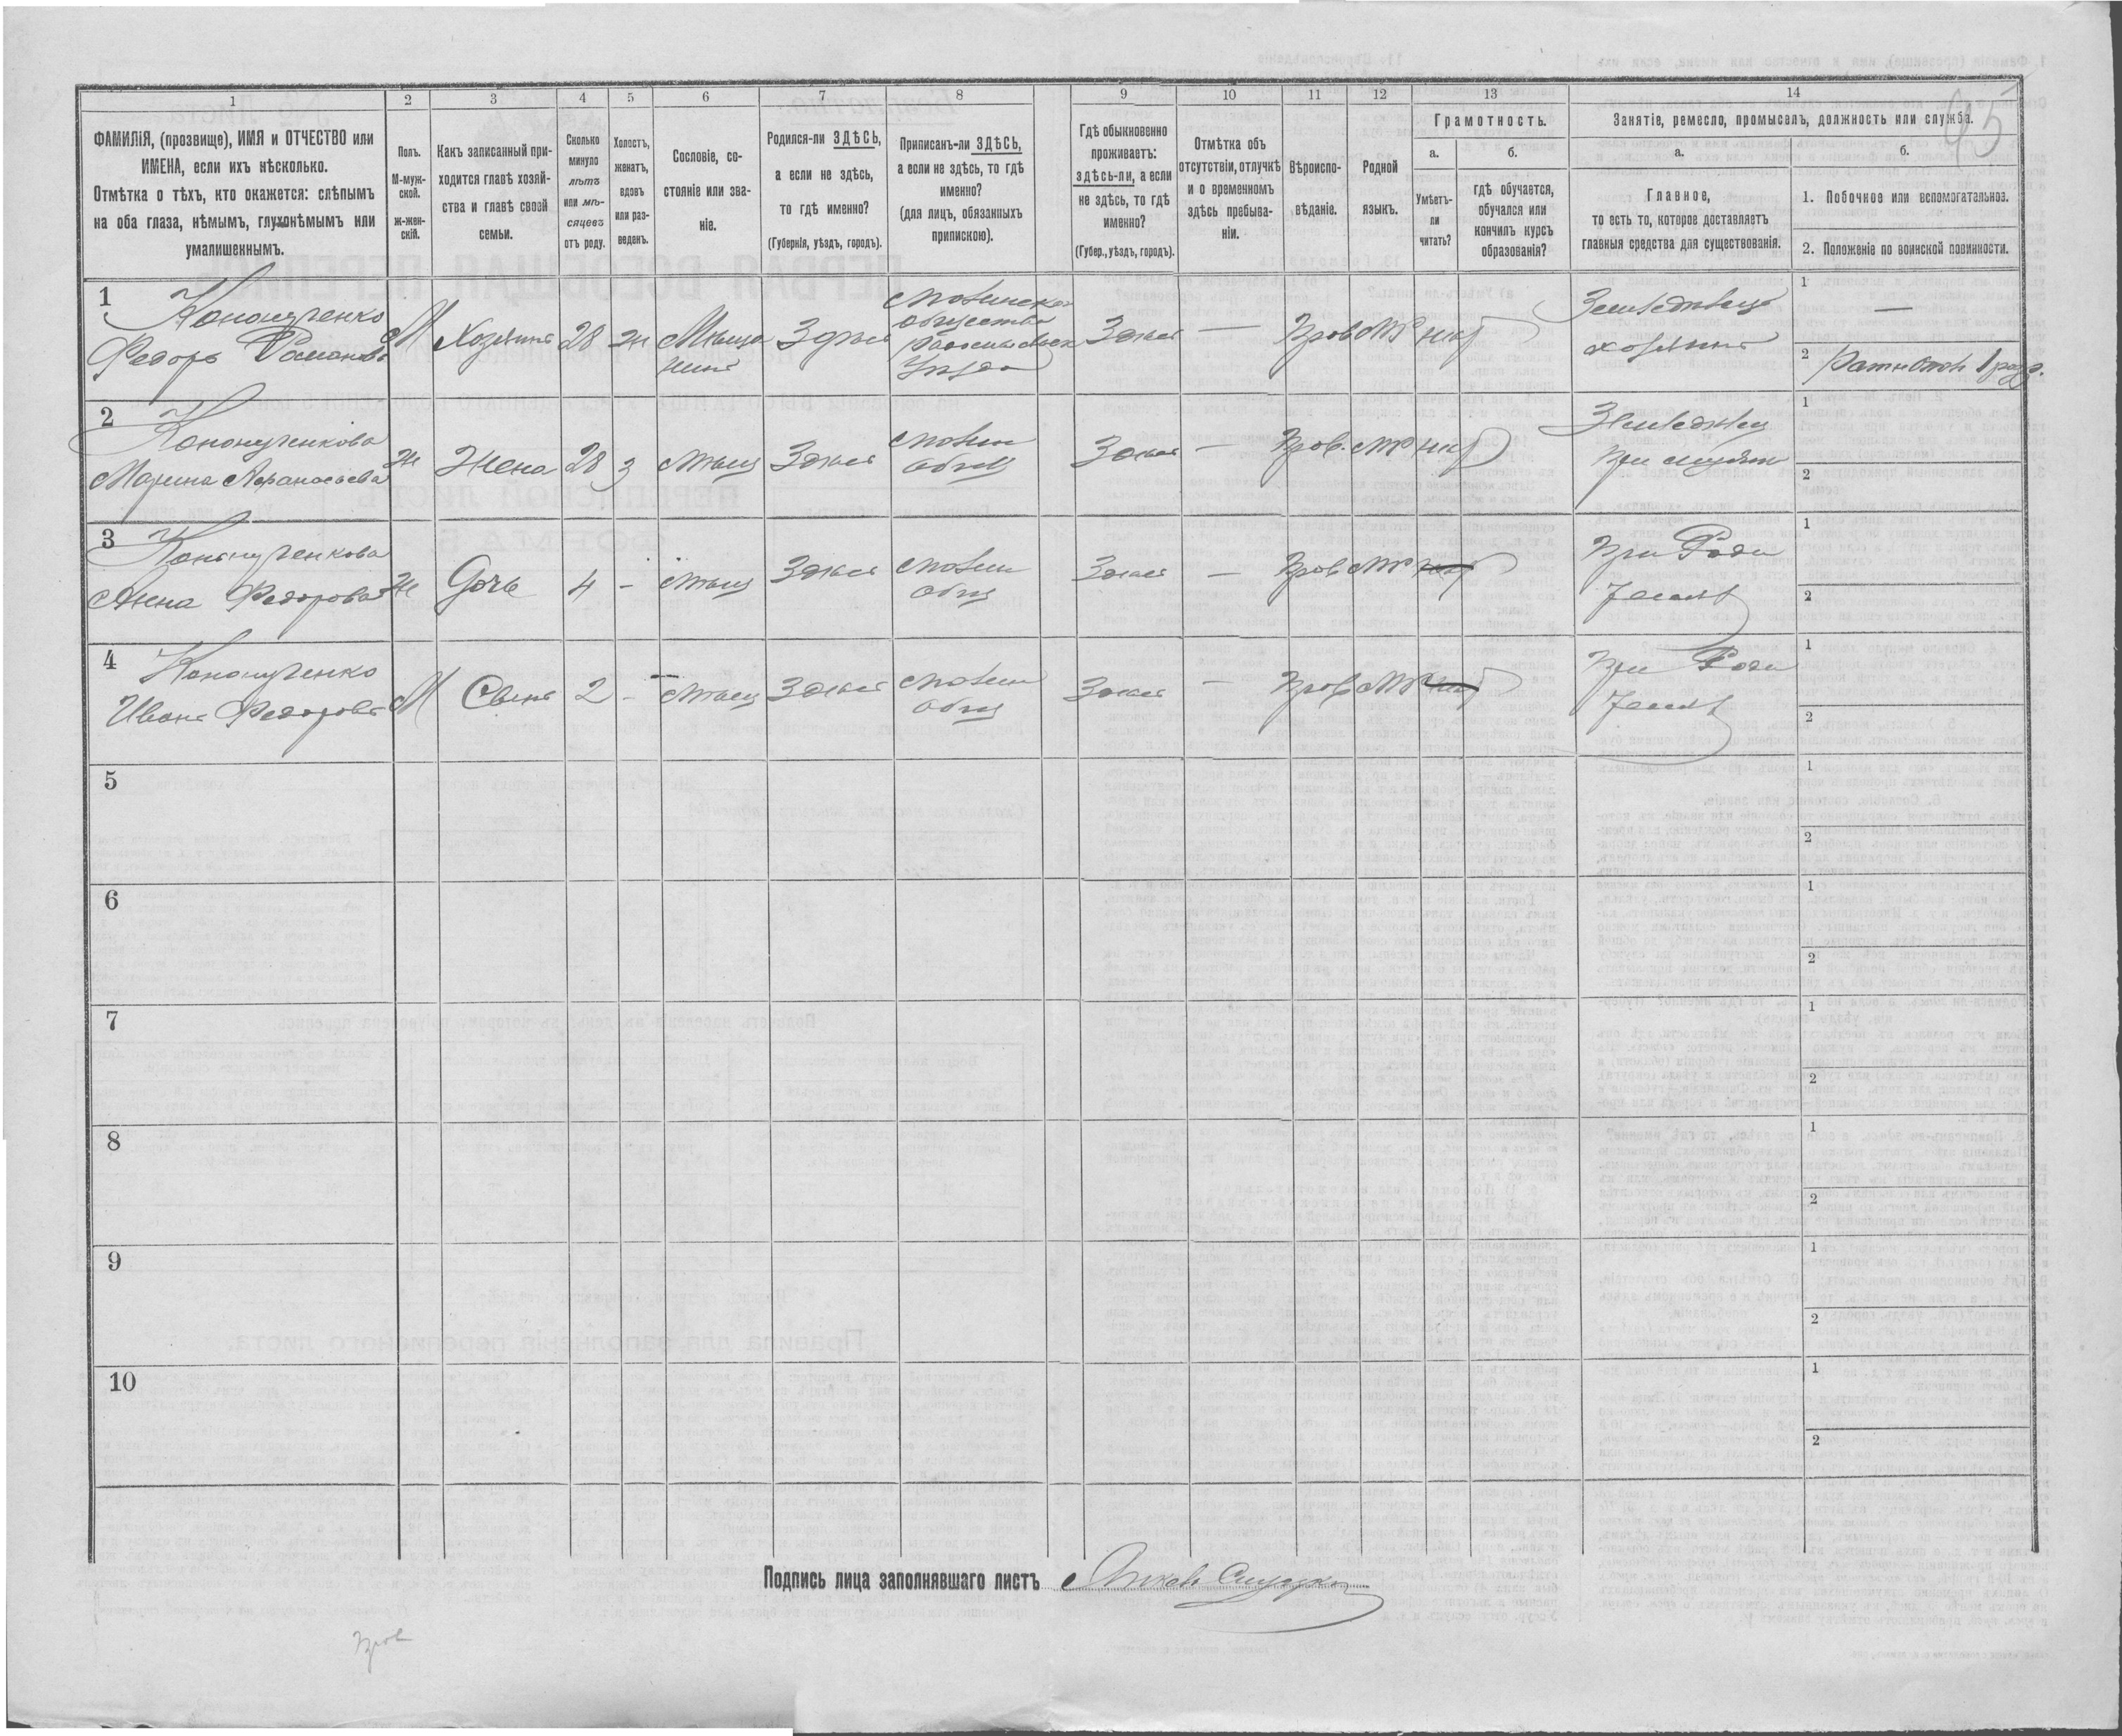 95
1 2 3 4 5 6 7 8 9 10 11 12 13 14
ФАМИЛІЯ, (прозвище), ИМЯ и ОТЧЕСТВО или
ИМЕНА, если ихъ нѣсколько.
Отмѣтка о тѣхъ, кто окажется: слѣпымъ
на оба глаза, нѣмымъ, глухонѣмымъ или
умалишеннымъ.
Полъ.
М-муж-
ской.
ж-жен-
скій.
Какъ записанный при-
ходится главѣ хозяй-
ства и главѣ своей
семьи.
Сколько
минуло
лѣтъ
или мѣ-
сяцевъ
отъ роду.
Холостъ,
женатъ,
вдовъ
или раз-
веденъ.
Сословіе, со-
стояніе или зва-
ніе.
Родился-ли ЗДѢСЬ,
а если не здѣсь,
то гдѣ именно?
(Губернія, уѣздъ, городъ).
Приписанъ-ли ЗДѢСЬ,
а если не здѣсь, то гдѣ
именно?
(для лицъ, обязанныхъ
припискою).
Гдѣ обыкновенно
проживаетъ:
здѣсь-ли, а если
не здѣсь, то гдѣ
именно?
(Губер., уѣздъ, городъ).
Отмѣтка объ
отсутствіи, отлучкѣ
и о временномъ
здѣсь пребыва-
ніи.
Вѣроиспо-
вѣданіе.
Родной
языкъ.
Грамотность.
а.
Умѣетъ-
ли
читать?
б.
гдѣ обучается,
обучался или
кончилъ курсъ
образованія?
Занятіе, ремесло, промыселъ, должность или служба.
а.
Главное,
то есть то, которое доставляетъ
главныя средства для существованія.
б.
1. Побочное или вспомогательное.
2. Положеніе по воинской повинности.
1
Кononученко
Федоръ Романовъ
М
Хозяинъ
28
Ж
Мѣща
нинъ
Здѣсь
общества
Уѣзда
Здѣсь
—
Прав
нѣт
Земледѣлецъ
хозяинъ
1 —
2 Ратникъ 1 разр.
2
Кононученкова
Марина Афанасьева
Ж
Жена
28
З
Мѣщ
Здѣсь
Общ
Здѣсь
—
Прав.
нѣт
Земледѣлец
При мужѣ
1
2
3
Кононученкова
Анна Федорова
Ж
Дочь
4
-
Мѣщ
Здѣсь
Общ
Здѣсь
—
Прав
При Роди
телях
1
2
4
Кононученко
Иванъ Федоровъ
М
Сынъ
2
-
Мѣщ
Здѣсь
Общ
Здѣсь
—
Прав
При Роди
телях
1
2
5
1
2
6
1
2
7
1
2
8
1
2
9
1
2
10
1
2
Подпись лица заполнявшаго листъ
Прав